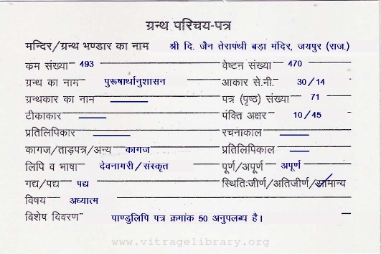 ग्रन्थ परिचय-पत्र
मन्दिर/ग्रन्थ भण्डार का नाम श्री दि. जैन तेरापंथी बड़ा मंदिर, जयपुर (राज.)
क्रम संख्या 493 वेष्टन संख्या 470
ग्रन्थ का नाम पुरूषार्थानुशासन आकार से.मी. 30/14
ग्रन्थकार का नाम पत्र (पृष्ठ) संख्या 71
टीकाकार पंक्ति अक्षर 10/45
प्रतिलिपिकार रचनाकाल
कागज/ताड़पत्र/अन्य कागज प्रतिलिपिकाल
लिपि व भाषा देवनागरी/संस्कृत पूर्ण/अपूर्ण अपूर्ण
गद्य/पद्य पद्य स्थिति:जीर्ण/अतिजीर्ण/सामान्य
विषय अध्यात्म
विशेष विवरण पाण्डुलिपि पत्र क्रमांक 50 अनुपलब्ध है।
www.vitragelibrary.org